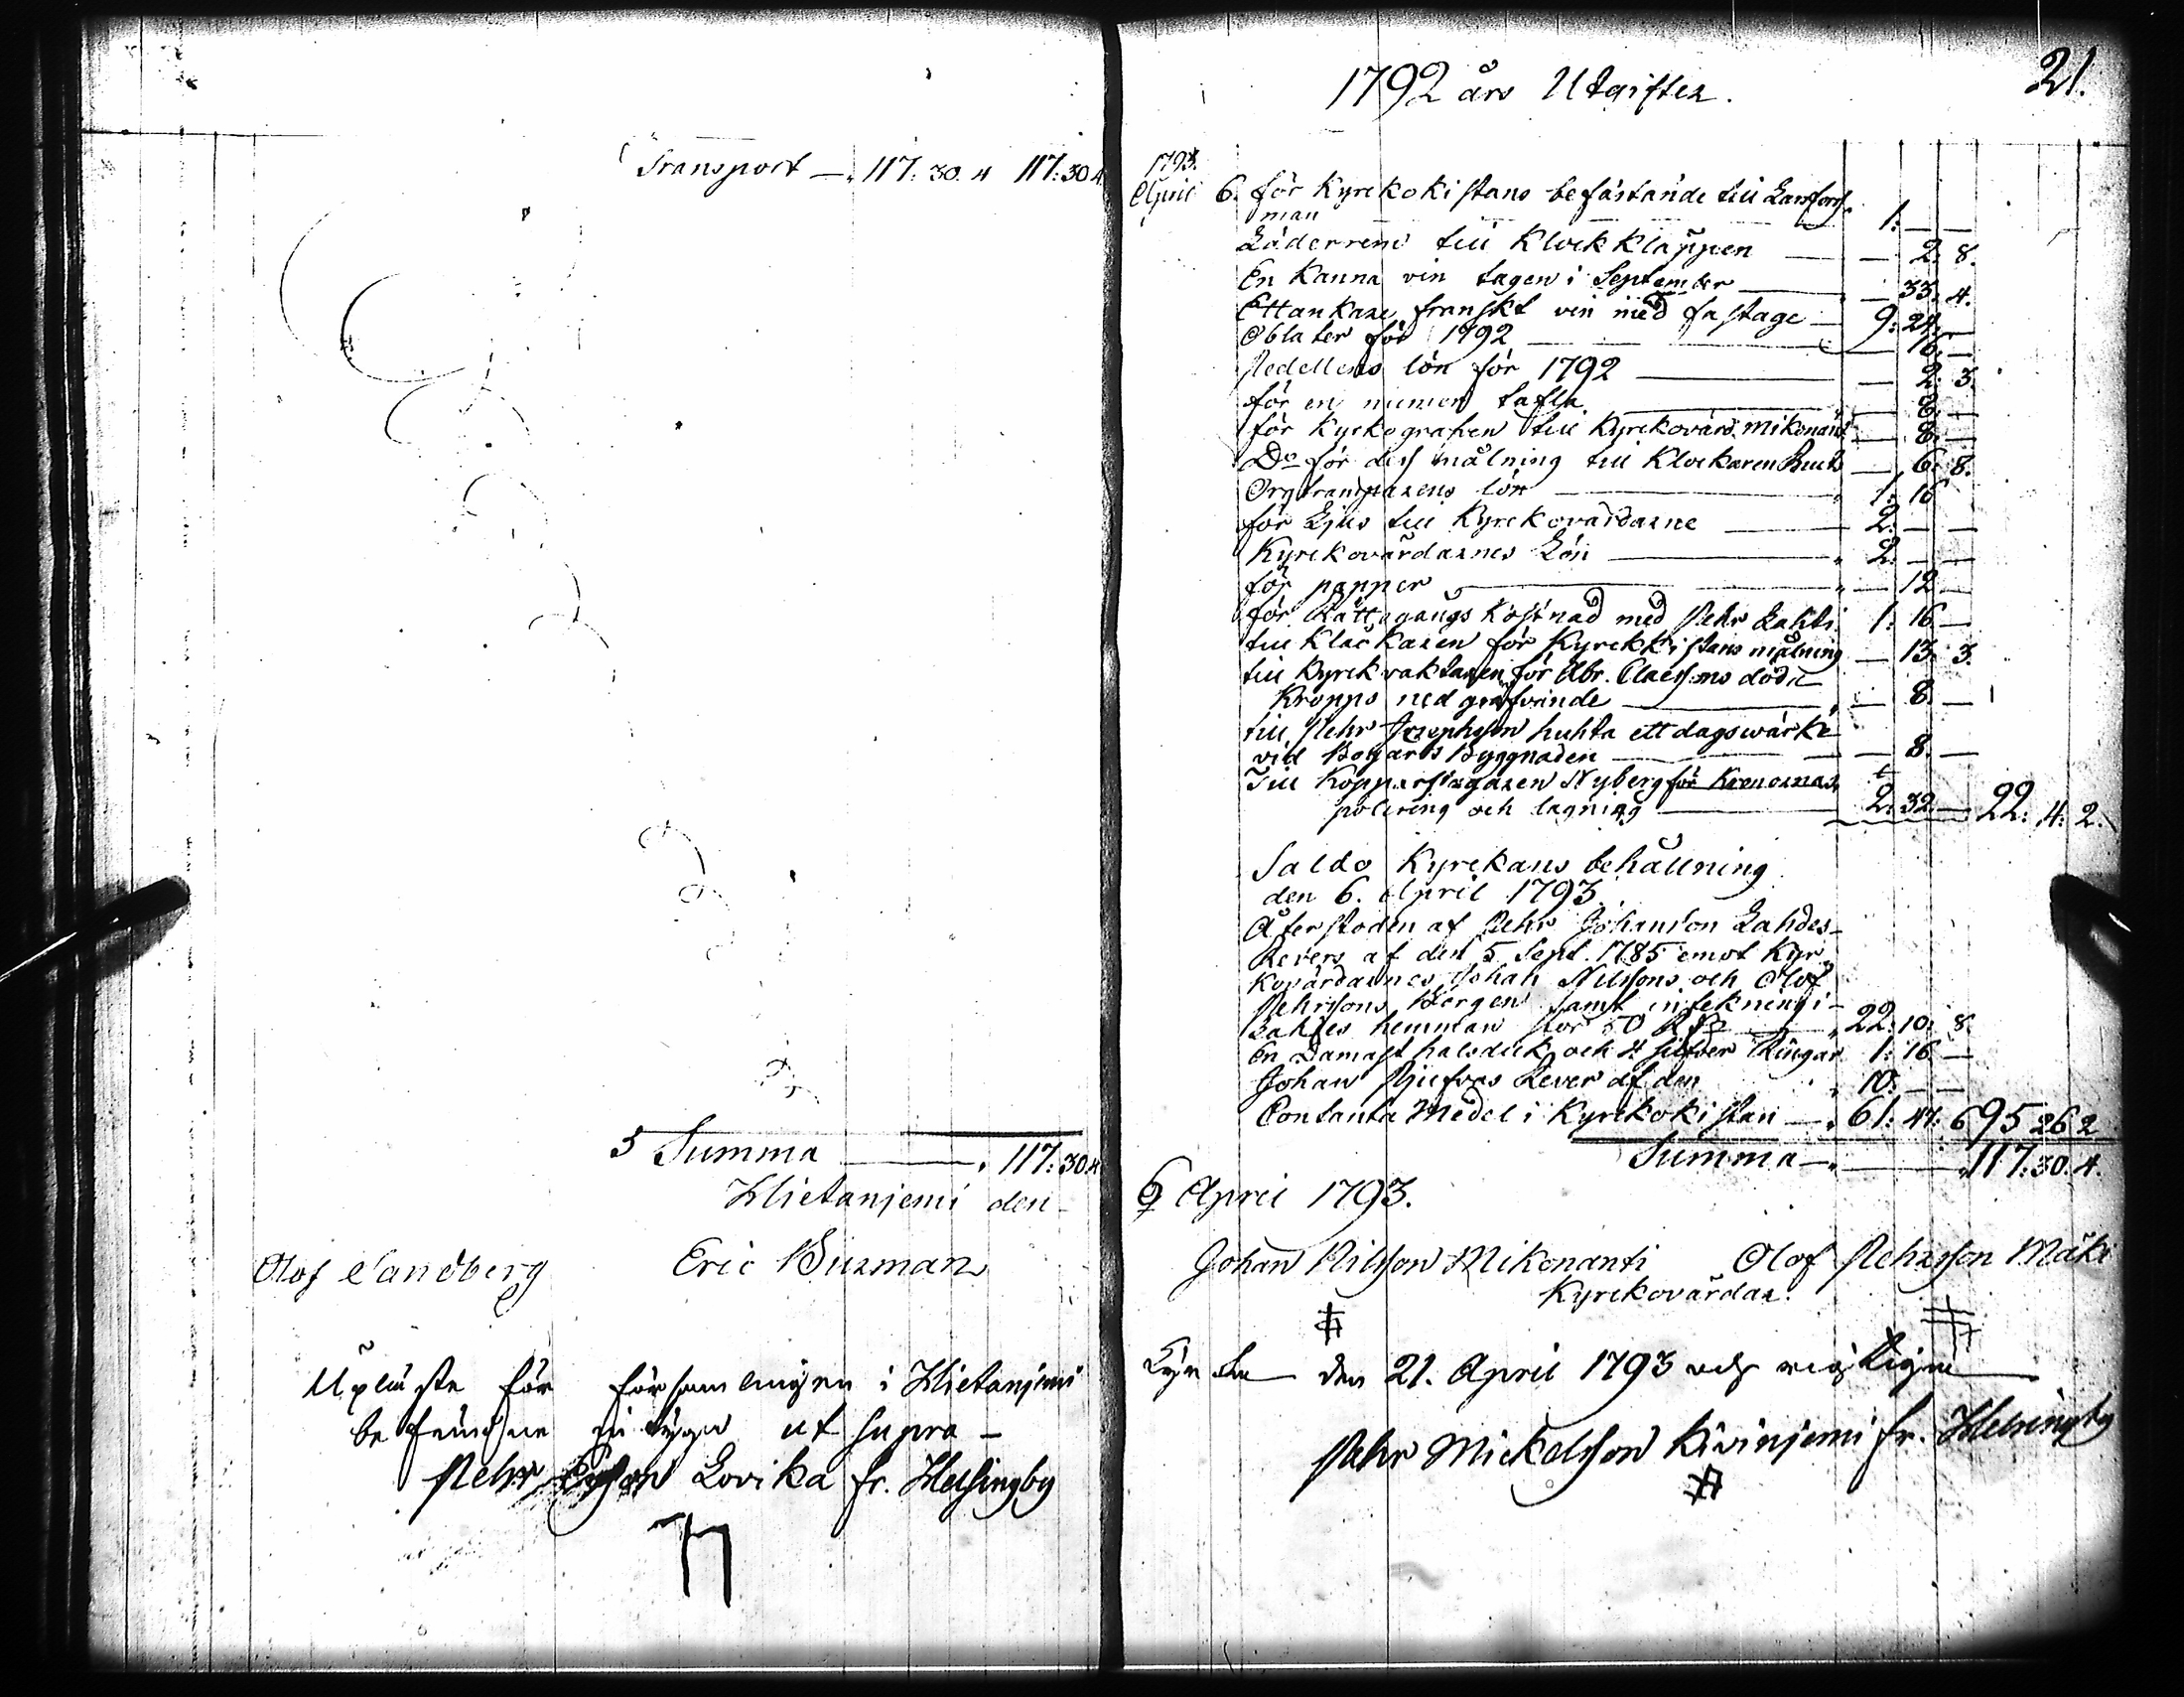 Transport — 117. 30. 4 117: 30 4.
5 Summa — 117: 30. 4
Hietaniemi den
Olof Sandberg Eric Burman
Upläste för församlingen i Hietaniemi
befundne ut supra —
Pehr Lovika fr. Helsingby
21.
1792 års Utgifter.
1793.
April 6. för Kyrckokistans befästande till
man 1: — —
Läderrem till Klockkläppen — 2. 8.
En Kanna vin tagen i September — 33. 4.
Ett ankare franskt vin med fastage — 9: 24. —
Oblater för 1792 — 16. —
Pedellens lön för 1792 — 2. 3.
för en numer tafla — 8. —
för Kyrkografven till Kyrckovärd. Mikonanti — 8. —
Do för dess målning till Klockaren — 6. 8.
Orgtramparens lön — 1: 16
för Ljus till Kyrckovärdarne — 2. — —
Kyrckovärdarnes Lön — 2. — —
för papper — 12 —
för Rättegångs Kostnad med Pehr Lahti 1: 16 —
till Klåckaren för Kyrckkistans målning — 13. 3.
till Kyrckvaktaren för Abr. Claessons döda
Kropps nedgräfvande — 8. —
till Pehr Josephsson huhta ett dagswärke
vid Bogårds Byggnaden — 8. —
Till Kopparslagaren Nyberg för Kronornas
polering och lagning — 2. 32 — 22. 4: 2.
Saldo Kyrckans behållning
den 6. April 1793.
Återstoden af Pehr Johanson Lahdes
Revers af den 5 Sept. 1785 emot Kyr-
kovärdarnes Johan Nilssons och Olof
Pehrssons Borgen samt inteckning i
Lahdes hemman stor 50 — 22: 10: 8.
En Damast halsduk och 4 silfver Ringar 1: 16 —
Johan Revers af den 10. — —
Contanta Medel i Kyrckokistan — 61: 47: 6 95 26 2
Summa — 117. 30. 4.
6 April 1793.
Johan Nilsson Mikonanti Olof Pehrsson Mäki
Kyrckovärdar.
den 21. April 1793 och
Pehr Mickelsson Kiviniemi fr. Helsingby